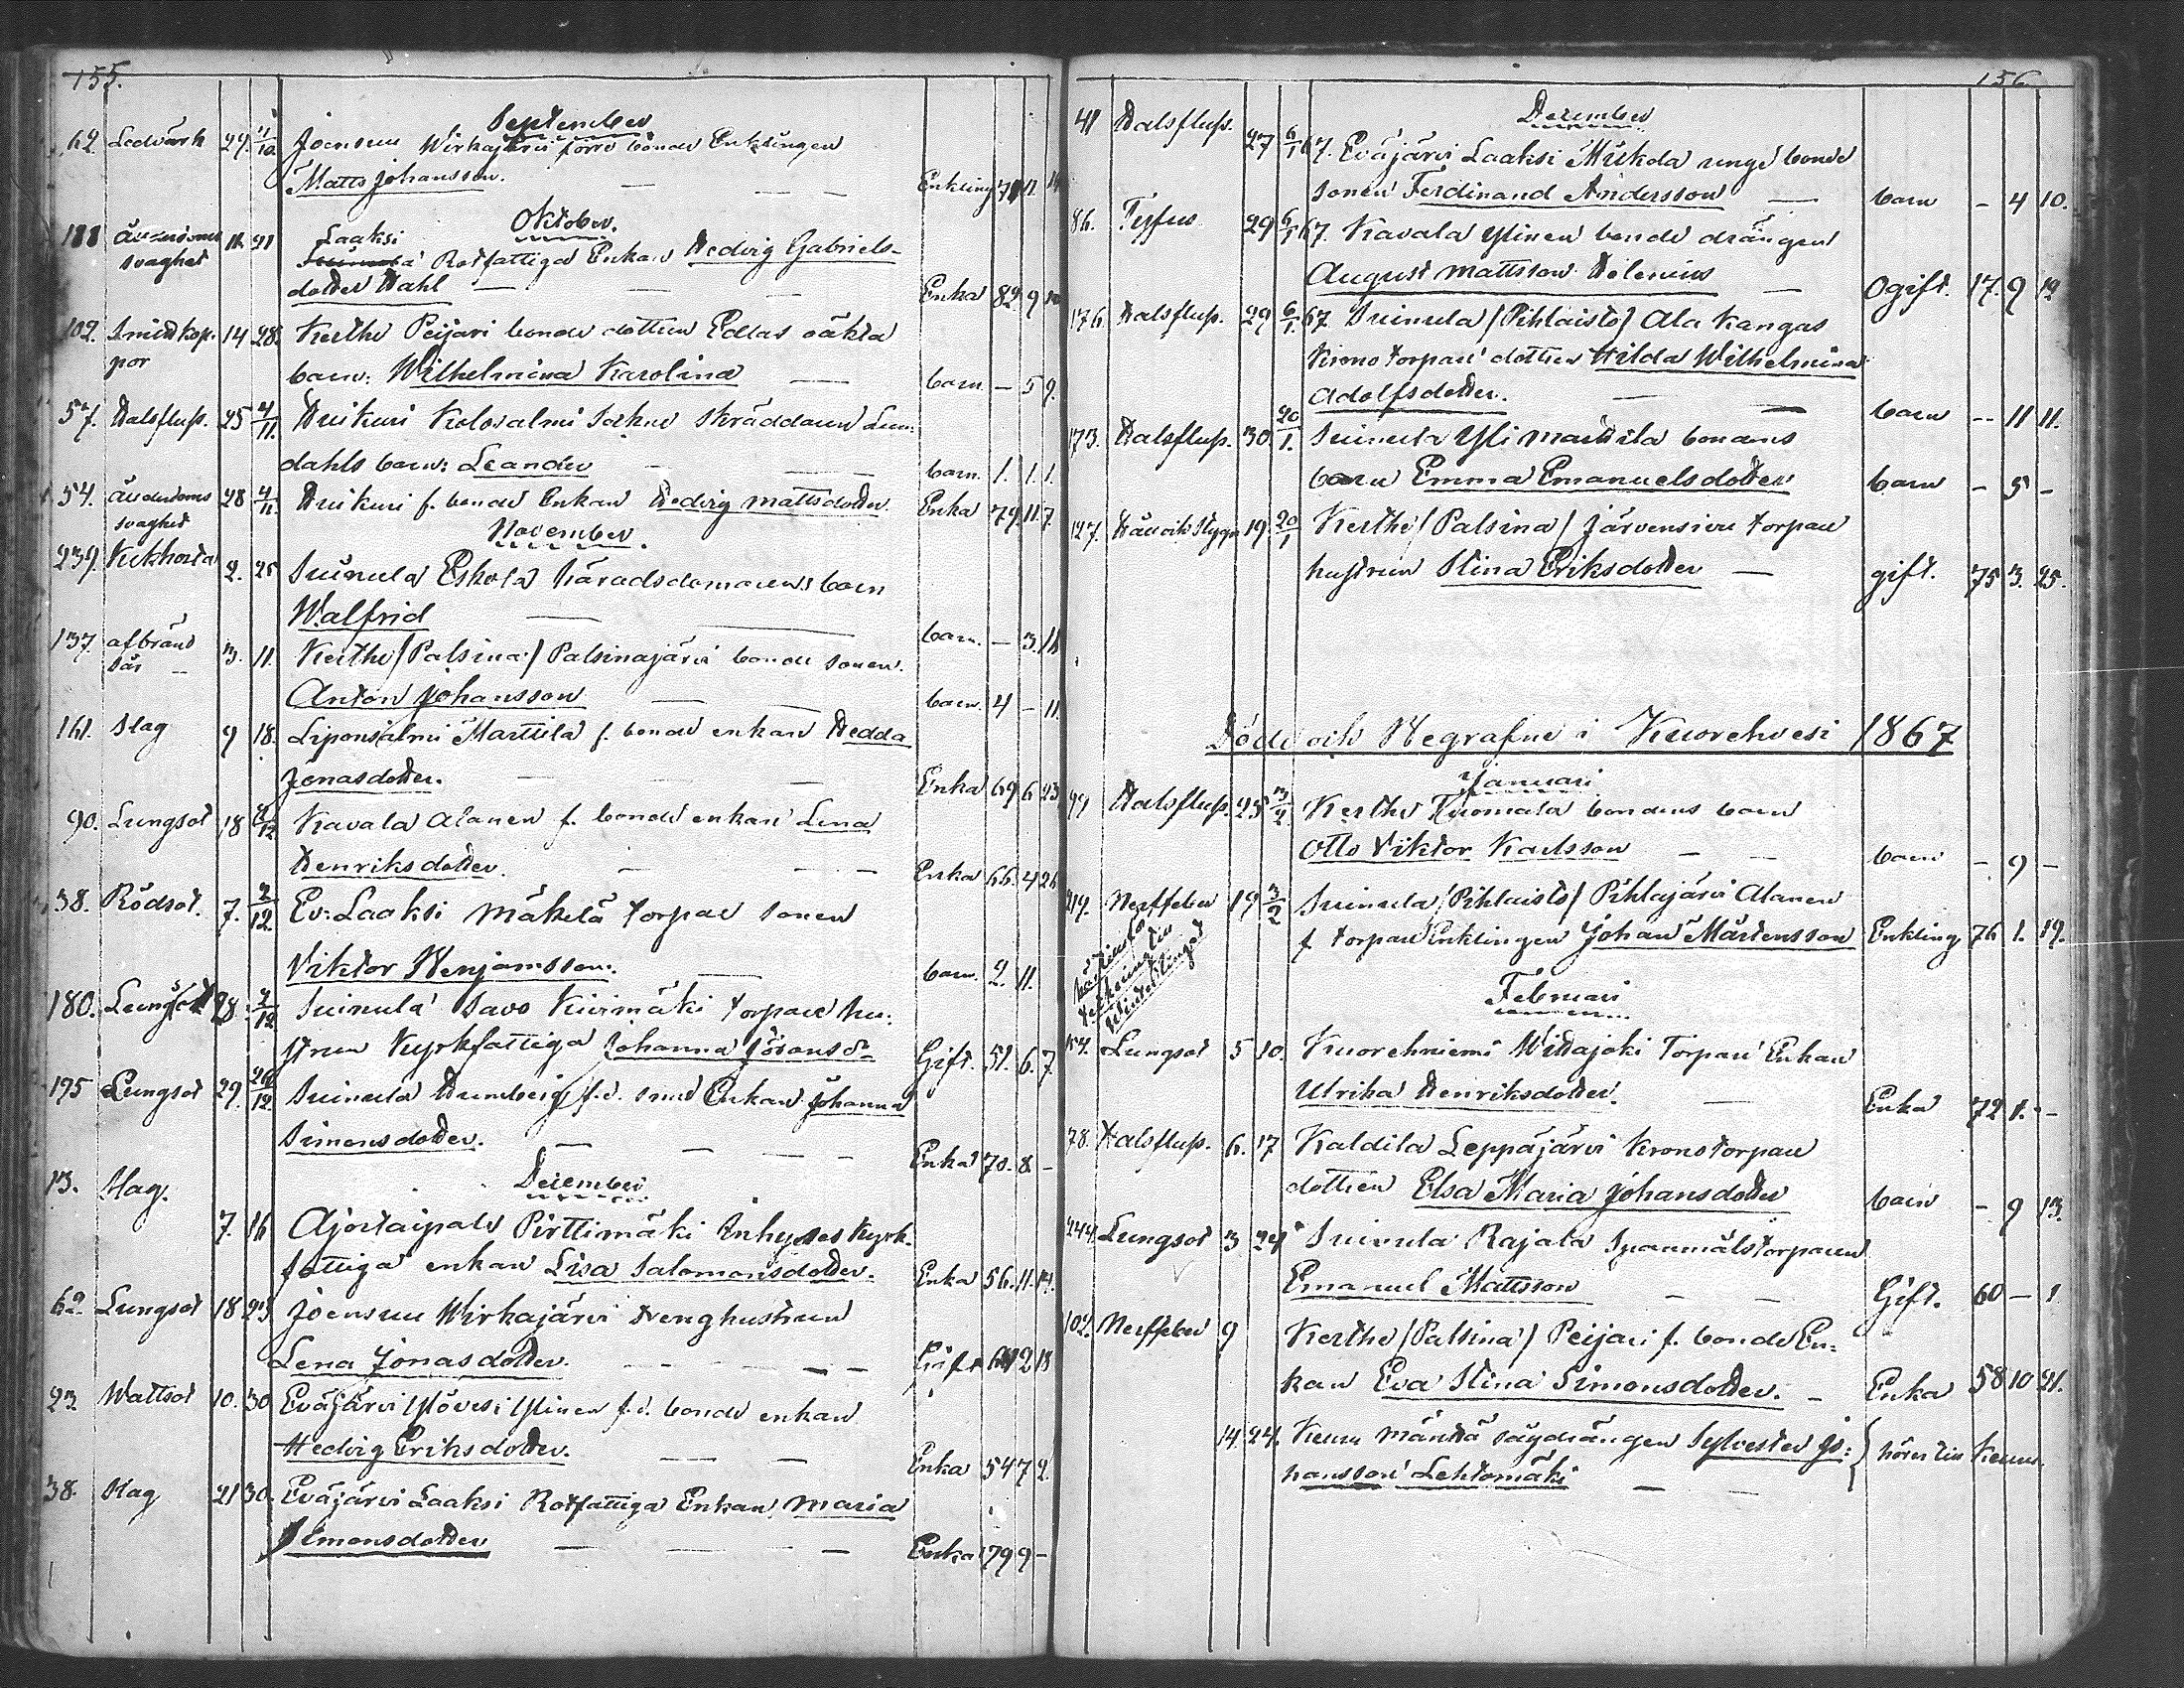 155.
September
62. Ledvärk 29. 11/10 Joensuu Wirkajärvi förre bonde Enklingen
Matts Johansson. Enkling 71 11 14
Oktober.
188 ålderdoms 11. 21 Laaksi
svaghet Rotfattiga Enkan Hedvig Gabriels-
dotter Dahl Enka 82 9
102. Smittkop- 14 28. Kerthe Peijari bonde dottren Eddas oäkta
por
barn: Wilhelmina Karolina barn. – 5 9.
57. Halsfluss. 25 4/11. Huikuri Kolosalmi Sockne skräddaren Lun-
dahls barn: Leander barn. 1. 1. 1.
54. ålderdoms 28 4/11. Huikuri f. bonde Enkan Hedvig Mattsdotter Enka 79. 11. 7.
svaghet
November.
239. Kikhosta 2. 25 Suinula Eskola häradsdomarens barn
Walfrid barn. – 3. 16
137. afbränd 3. 11. Kerthe /Palsina/ Palsinajärvi bonde sonen
sår
Anton Johansson barn. 4 – 11.
161. Slag 9 18. Liponsalmi Marttila f. bonde enkan Hedda
Jonasdotter. Enka 69 6 23
90. Lungsot 18 2/12 Kavala Alanen f. bonde enkan Lena
Henriksdotter. Enka 66. 4 26
38. Rödsot. 7. 2/12. Ev: Laaksi Mäkelä torpare sonen
Viktor Benjamsson. barn. 2. 11.
180. Lungsot 28. 2/12 Suinula Savo Kiirimäki torpare hu-
strun Kyrkfattiga Johanna Göransd: Gift. 51. 6. 7.
195 Lungsot 29. 26/12. Suinula Humberg f.d. smed Enkan Johanna
Simonsdotter. Enka 70. 8. –
December
13. Slag. 7. 16 Ajostaipale Pirttimäki Inhyses Kyrk-
fattiga enkan Lisa Salomonsdotter. Enka 56. 11. 14.
62 Lungsot 18 23 Joensuu Wirkajärvi drenghustrun
Lena Jonasdotter. Gift 64 2 18
23 Wattsot 10. 30 Eväjärvi Ylövesi Ylinen f.d. bonde enkan
Hedvig Eriksdotter. Enka 54 7 2.
38. Slag 21 30. Eväjärvi Laaksi Rotfattiga Enkan Maria
Simonsdotter Enka 79 9 –
156
December
41 Halsfluss. 27 6/1 67. Eväjärvi Laaksi Mikola unge bonde
sonen Ferdinand Andersson barn – 4 10.
86. Tyfus 29 6/1 67. Kavala Ylinen bonde drängen
August Mattsson Helenius Ogift. 17. 9 12
176. Halsfluss. 29 6/1. 67 Suinula /Pihlaisto/ Ala Kangas
Krono torpare dottren Hilda Wilhelmina
Adolfsdotter. barn – 11 11.
173. Halsfluss. 30. 20/1. Suinula Yli Marttila bondens
barn Emma Emanuelsdotter barn – 5 –
127. Håll och Stygn 19. 20/1 Kerthe /Palsina/ Järvensivu torpare
hustrun Stina Eriksdotter gift. 75 3. 25.
Döde och Begrafne i Kuorehvesi 1867
Januari
99 Halsfluss. 25 3/2. Kerthe Tuomala bondens barn
Otto Viktor Karlsson barn – 9 –
219. Nerffeber 19 3/2 Suinula /Pihlaisto/ Pihlajärvi Alanen
f. torpare Enklingen Johan Mårtensson Enkling 76 1. 19.
Februari
154. Lungsot 5 10. Kuorehniemi Wittajoki Torpare Enkan
Ulrika Henriksdotter. Enka 72 1. –
78. Halsfluss. 6. 17 Kaldila Leppäjärvi Kronotorpare
dottren Elsa Maria Johansdotter barn – 9 13.
244. Lungsot 3 24 Suinula Rajala Spannmålstorparen
Emanuel Mattsson Gift. 60 – 1
102. Nerffeber 9 Kerthe /Palsina/ Peijari f. bonde En-
kan Eva Stina Simonsdotter. Enka 58 10 21.
14 24. Keuru Mänttä sågdrängen Sylvester Jo-
hansson Lehtomäki } hörer till Keuru.